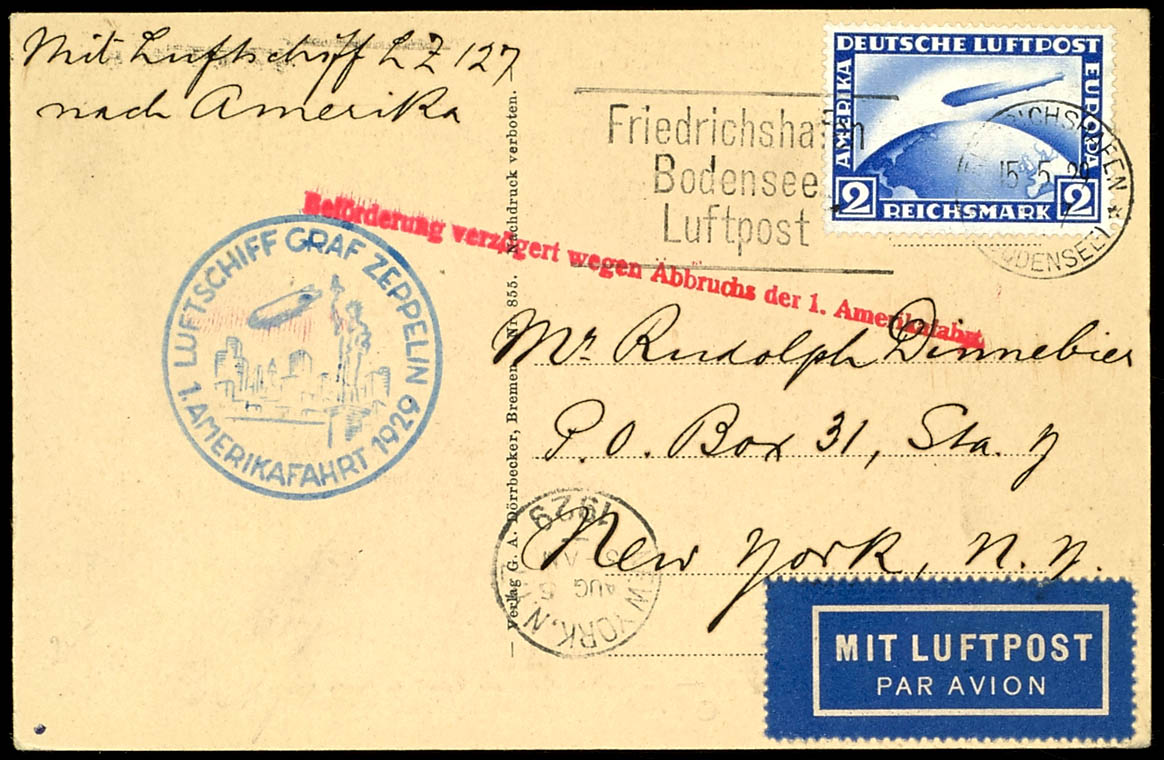 Mit Luftschiff LZ 127
nach Amerika
DEUTSCHE LUFTPOST
AMERIKA
EUROPA
2 REICHSMARK 2
Friedrichshafen
Bodensee
Luftpost
FRIEDRICHSHAFEN
15 5 29
(BODENSEE)
Beförderung verzögert wegen Abbruchs der 1. Amerikafahrt
LUFTSCHIFF GRAF ZEPPELIN
1. AMERIKAFAHRT 1929
Verlag G. A. Dörrbecker, Bremen. Nr. 855. Nachdruck verboten.
Mr. Rudolph Dinnebier
P.O. Box 31, Sta. Y
New York, N.Y.
NEW YORK, N.Y.
AUG 5
AM
1929
MIT LUFTPOST
PAR AVION